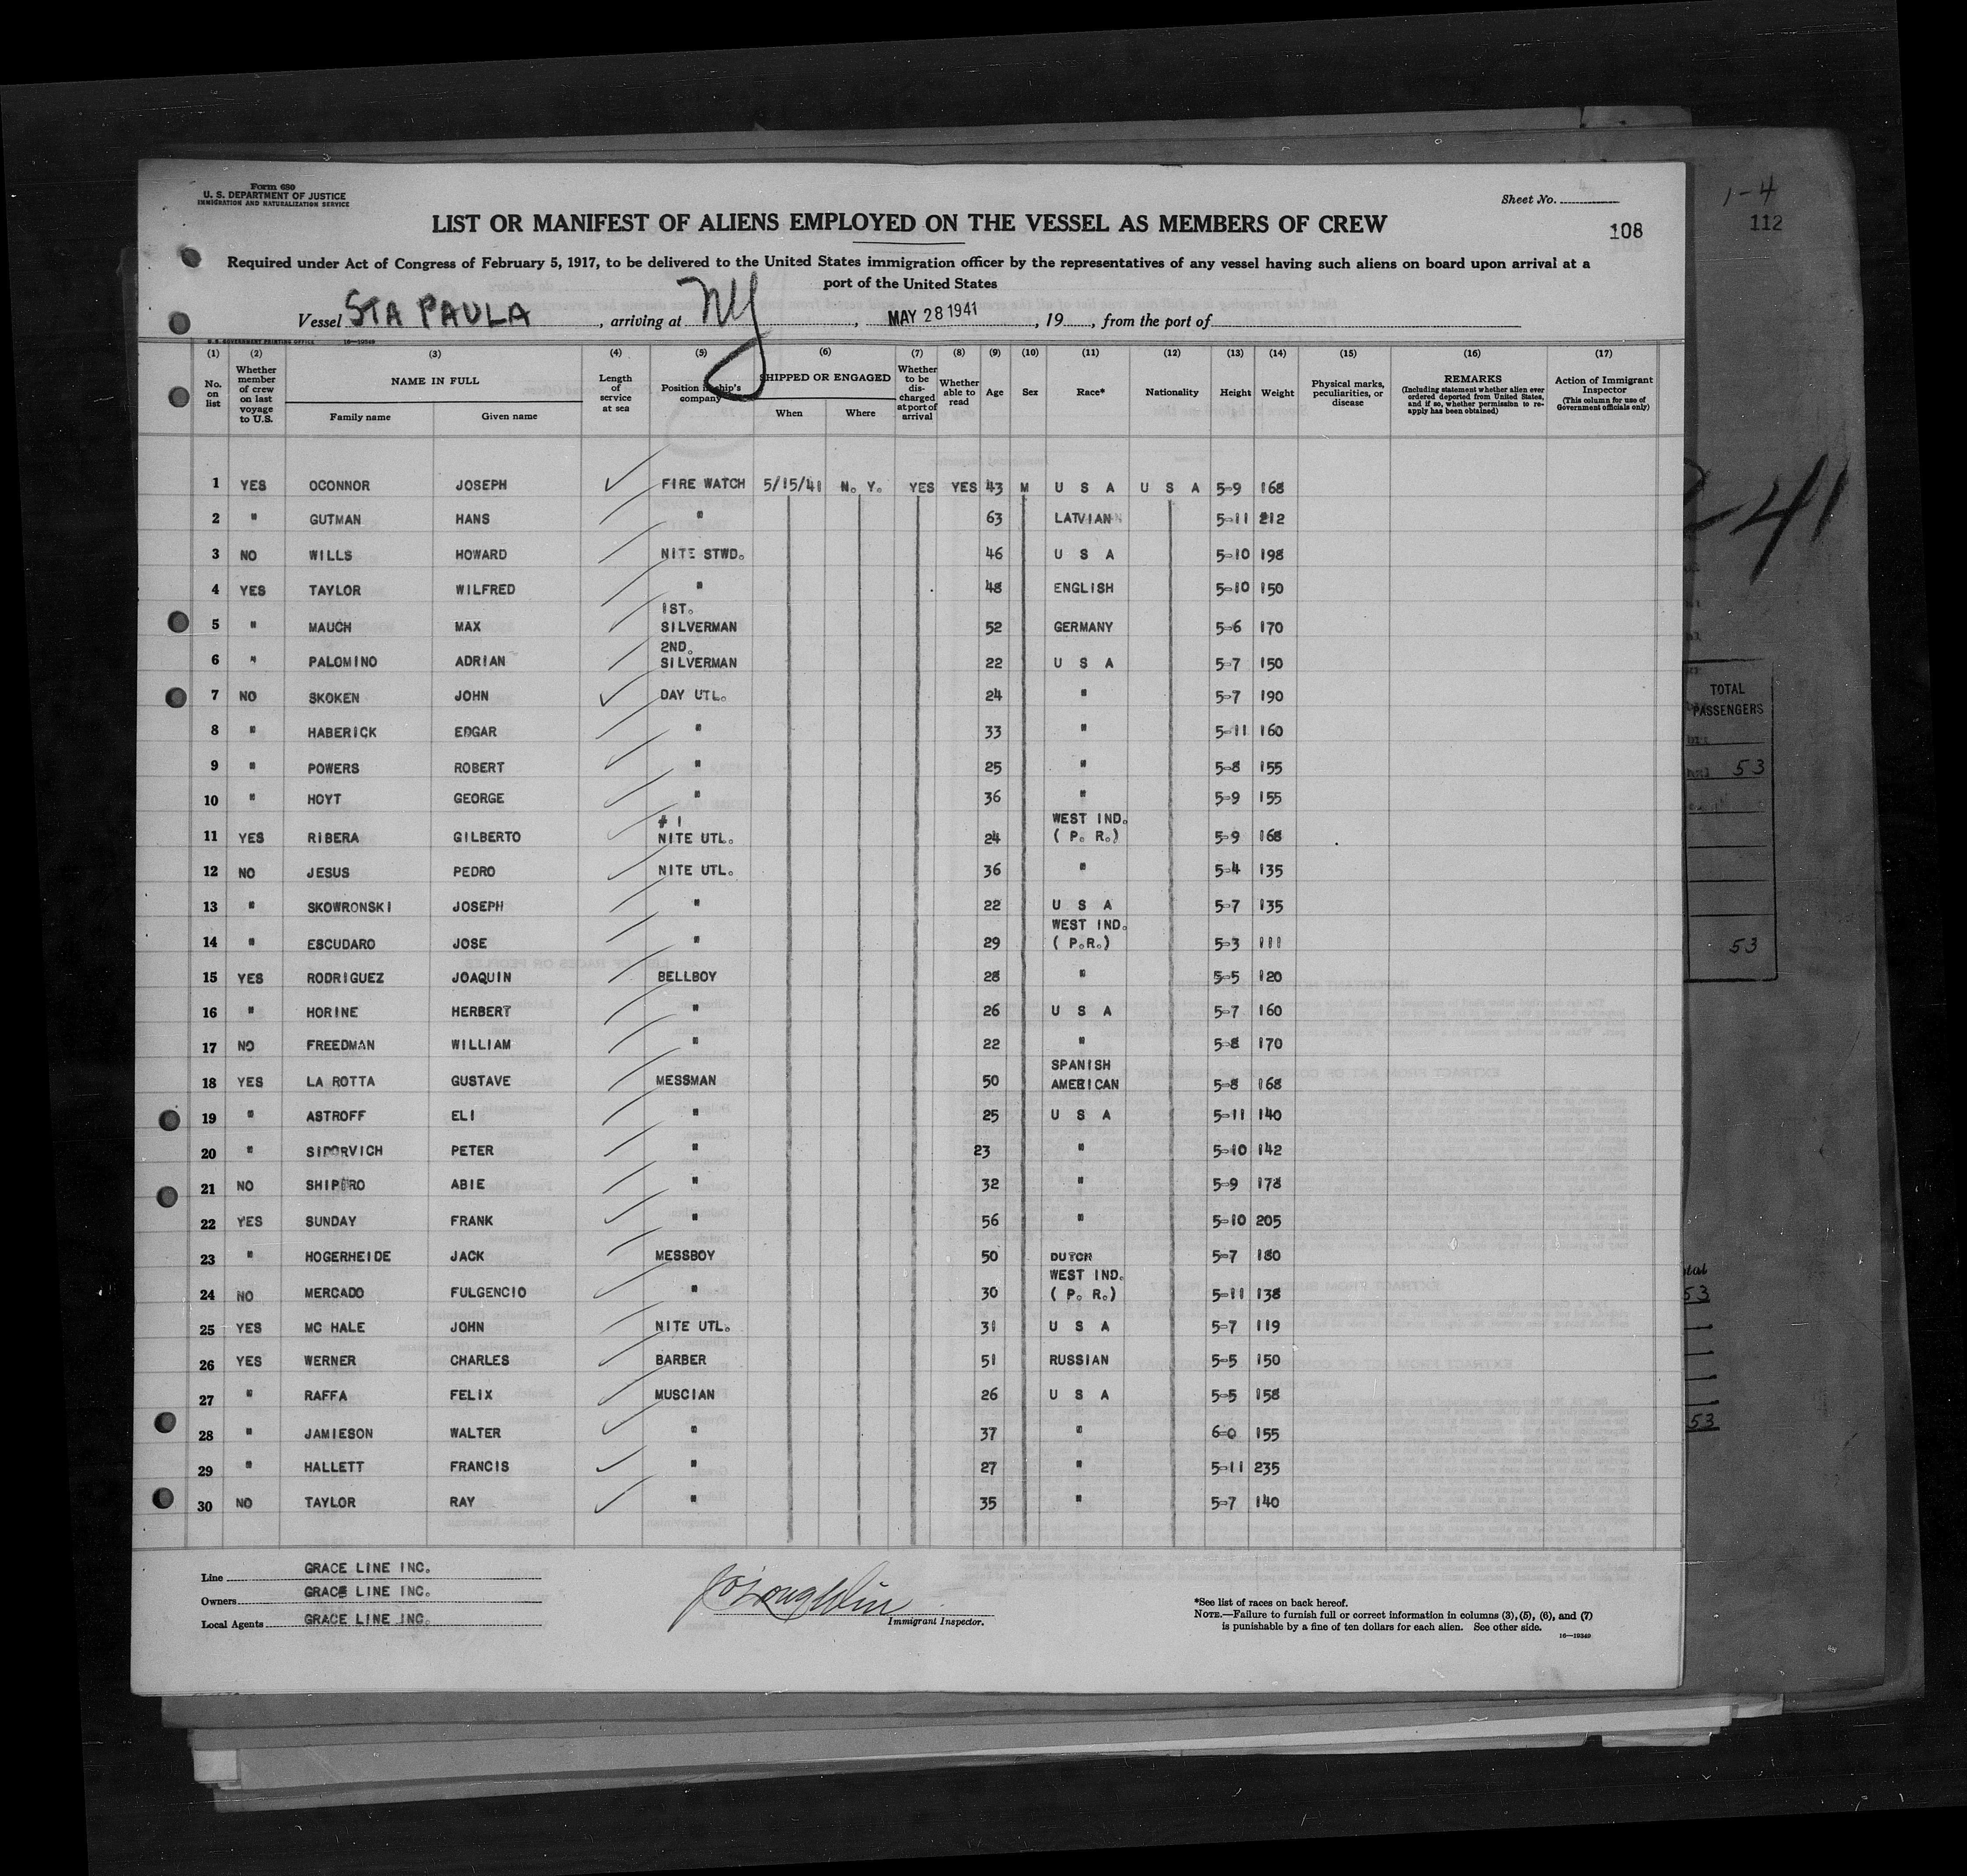 Form 680
U. S. DEPARTMENT OF JUSTICE
IMMIGRATION AND NATURALIZATION SERVICE
Sheet No.
LIST OR MANIFEST OF ALIENS EMPLOYED ON THE VESSEL AS MEMBERS OF CREW
108
1-4
112
Required under Act of Congress of February 5, 1917, to be delivered to the United States immigration officer by the representatives of any vessel having such aliens on board upon arrival at a
port of the United States
Vessel STA PAULA, arriving at NY, MAY 28 1941, 19, from the port of
U. S. GOVERNMENT PRINTING OFFICE 16—19349
(1) (2) (3) (4) (5) (6) (7) (8) (9) (10) (11) (12) (13) (14) (15) (16) (17)
No. on list
Whether member of crew on last voyage to U.S.
NAME IN FULL
Family name Given name
Length of service at sea
Position in ship's company
SHIPPED OR ENGAGED
When Where
Whether to be discharged at port of arrival
Whether able to read
Age Sex Race* Nationality Height Weight
Physical marks, peculiarities, or disease
REMARKS
(Including statement whether alien ever ordered deported from United States, and if so, whether permission to re-apply has been obtained)
Action of Immigrant Inspector
(This column for use of Government officials only)
1 YES OCONNOR JOSEPH FIRE WATCH 5/15/41 N. Y. YES YES 43 M U S A U S A 5-9 168
2 " GUTMAN HANS " 63 LATVIAN 5-11 212
3 NO WILLS HOWARD NITE STWD. 46 U S A 5-10 198
4 YES TAYLOR WILFRED " 48 ENGLISH 5-10 150
5 " MAUCH MAX 1ST. SILVERMAN 52 GERMANY 5-6 170
6 " PALOMINO ADRIAN 2ND. SILVERMAN 22 U S A 5-7 150
7 NO SKOKEN JOHN DAY UTL. 24 " 5-7 190
8 " HABERICK EDGAR " 33 " 5-11 160
9 " POWERS ROBERT " 25 " 5-8 155
10 " HOYT GEORGE " 36 " 5-9 155
11 YES RIBERA GILBERTO # 1 NITE UTL. 24 WEST IND. ( P. R.) 5-9 168
12 NO JESUS PEDRO NITE UTL. 36 " 5-4 135
13 " SKOWRONSKI JOSEPH " 22 U S A 5-7 135
14 " ESCUDARO JOSE " 29 WEST IND. ( P.R.) 5-3 111
15 YES RODRIGUEZ JOAQUIN BELLBOY 28 " 5-5 120
16 " HORINE HERBERT " 26 U S A 5-7 160
17 NO FREEDMAN WILLIAM " 22 " 5-8 170
18 YES LA ROTTA GUSTAVE MESSMAN 50 SPANISH AMERICAN 5-8 168
19 " ASTROFF ELI " 25 U S A 5-11 140
20 " SIDORVICH PETER " 23 " 5-10 142
21 NO SHIPIRO ABIE " 32 " 5-9 178
22 YES SUNDAY FRANK " 56 " 5-10 205
23 " HOGERHEIDE JACK MESSBOY 50 DUTCH 5-7 180
24 NO MERCADO FULGENCIO " 30 WEST IND. ( P. R.) 5-11 138
25 YES MC HALE JOHN NITE UTL. 31 U S A 5-7 119
26 YES WERNER CHARLES BARBER 51 RUSSIAN 5-5 150
27 " RAFFA FELIX MUSCIAN 26 U S A 5-5 158
28 " JAMIESON WALTER " 37 " 6-0 155
29 " HALLETT FRANCIS " 27 " 5-11 235
30 NO TAYLOR RAY " 35 " 5-7 140
Line GRACE LINE INC.
Owners GRACE LINE INC.
Local Agents GRACE LINE INC.
J O'Loughlin
Immigrant Inspector.
*See list of races on back hereof.
NOTE.—Failure to furnish full or correct information in columns (3), (5), (6), and (7)
is punishable by a fine of ten dollars for each alien. See other side.
16—19349
-41
TOTAL
PASSENGERS
53
53
53
53